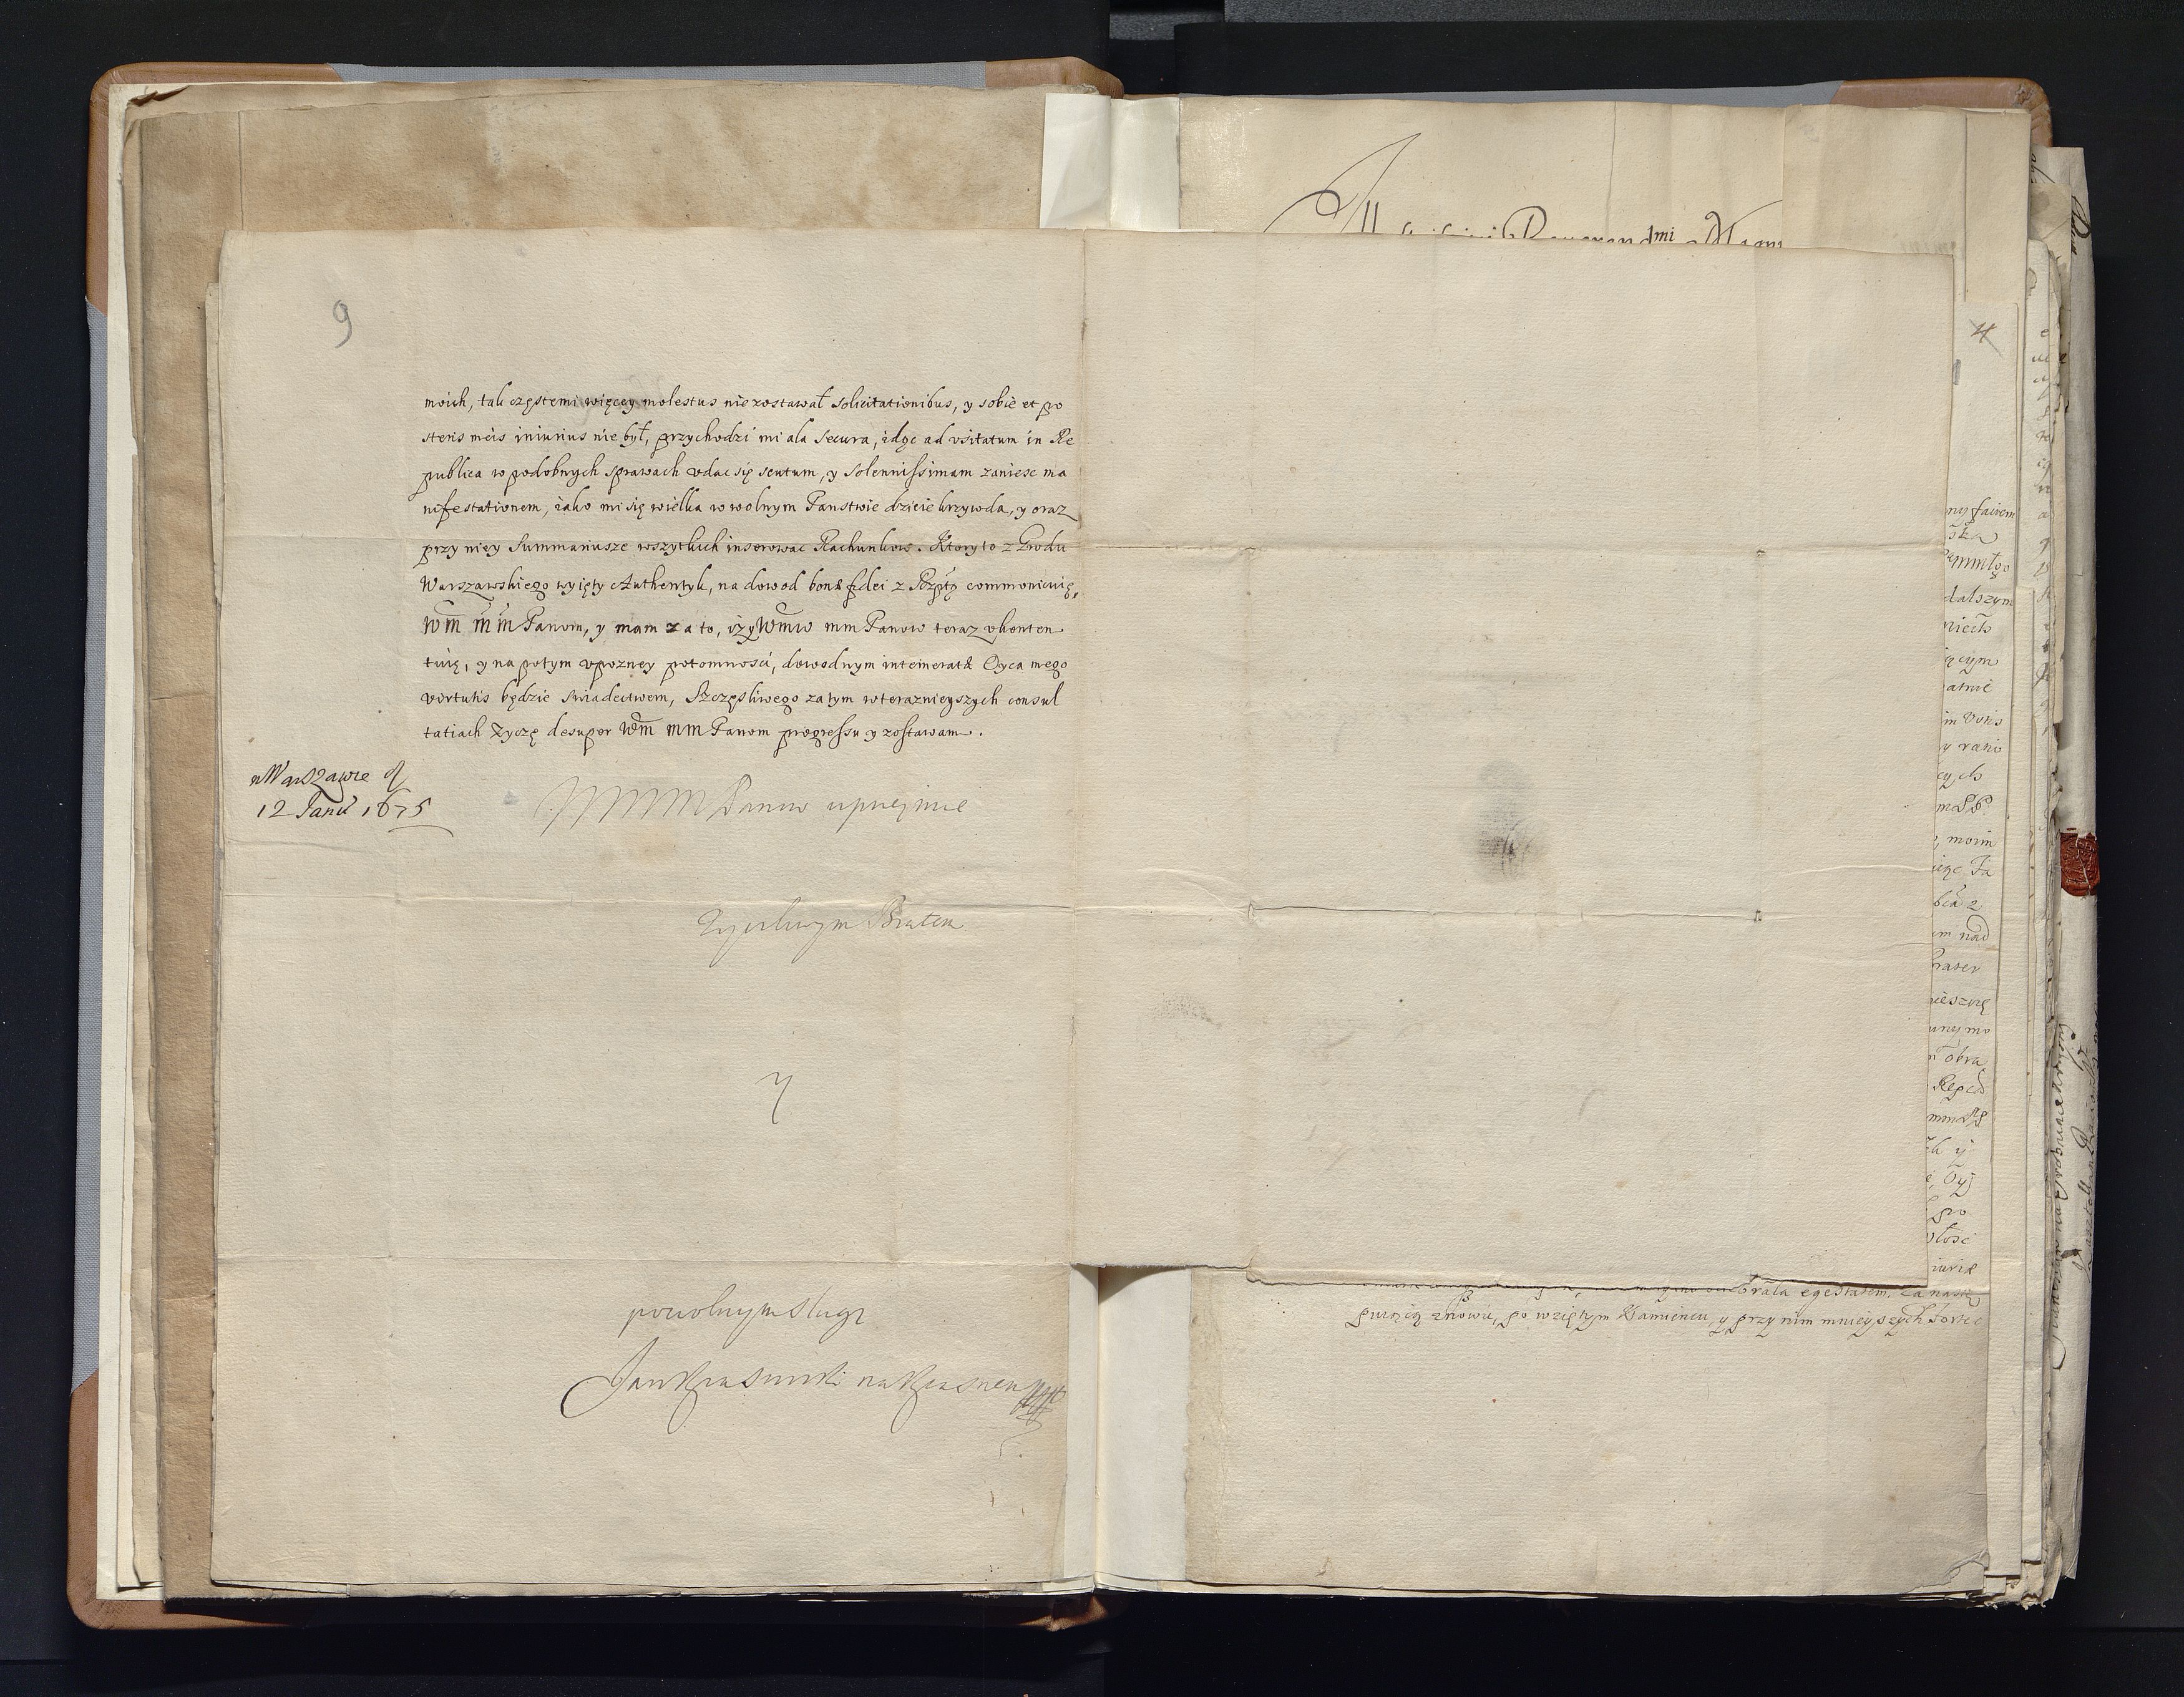 9
moich, tak częstemi więcey molestus nie zostawał solicitationibus, y sobie et po
steris meis iniurius nie był, przychodzi mi ala secura, idąc ad vsitatum in Re
publica w podobnych sprawach vdac się scutum, y solennissimam zaniesc ma
nifestationem, iako mi się wielka w wolnym Panstwie dzieie krzywda, y oraz
przy niey Summariusze wszytkich inserowac Rachunkow. Ktory to z Grodu
Warszawskiego wyięty Authentyk, na dowod bonæ fidei z Rzptą commonicuię,
Wm m m Panom, y mam za to, iży Wmw mm Panow teraz vkonten
tuię, y na potym vpozney potomnosci, dowodnym intemeratæ Oyca mego
virtutis będzie swiadectwem, Szczęsliwego za tym w teraznieyszych consul
tatiach Zyczę desuper Wm mm Panom progressu y zostawam.
w Warszawie d
12 Janu 1675
WMMM Panow uprzejmie
Zyczliwym Bratem
y
powolnym Slugą
Jan Krasinski na Krasnem
Reuerend mi Magn
4
dalszym
niech
im Voris
y ranio
cych
moim
im nad
obra
egestatem. Ca nastę
puiącą znowu, po wziętym Kamiencu, y przy nim mnieyszych fortec